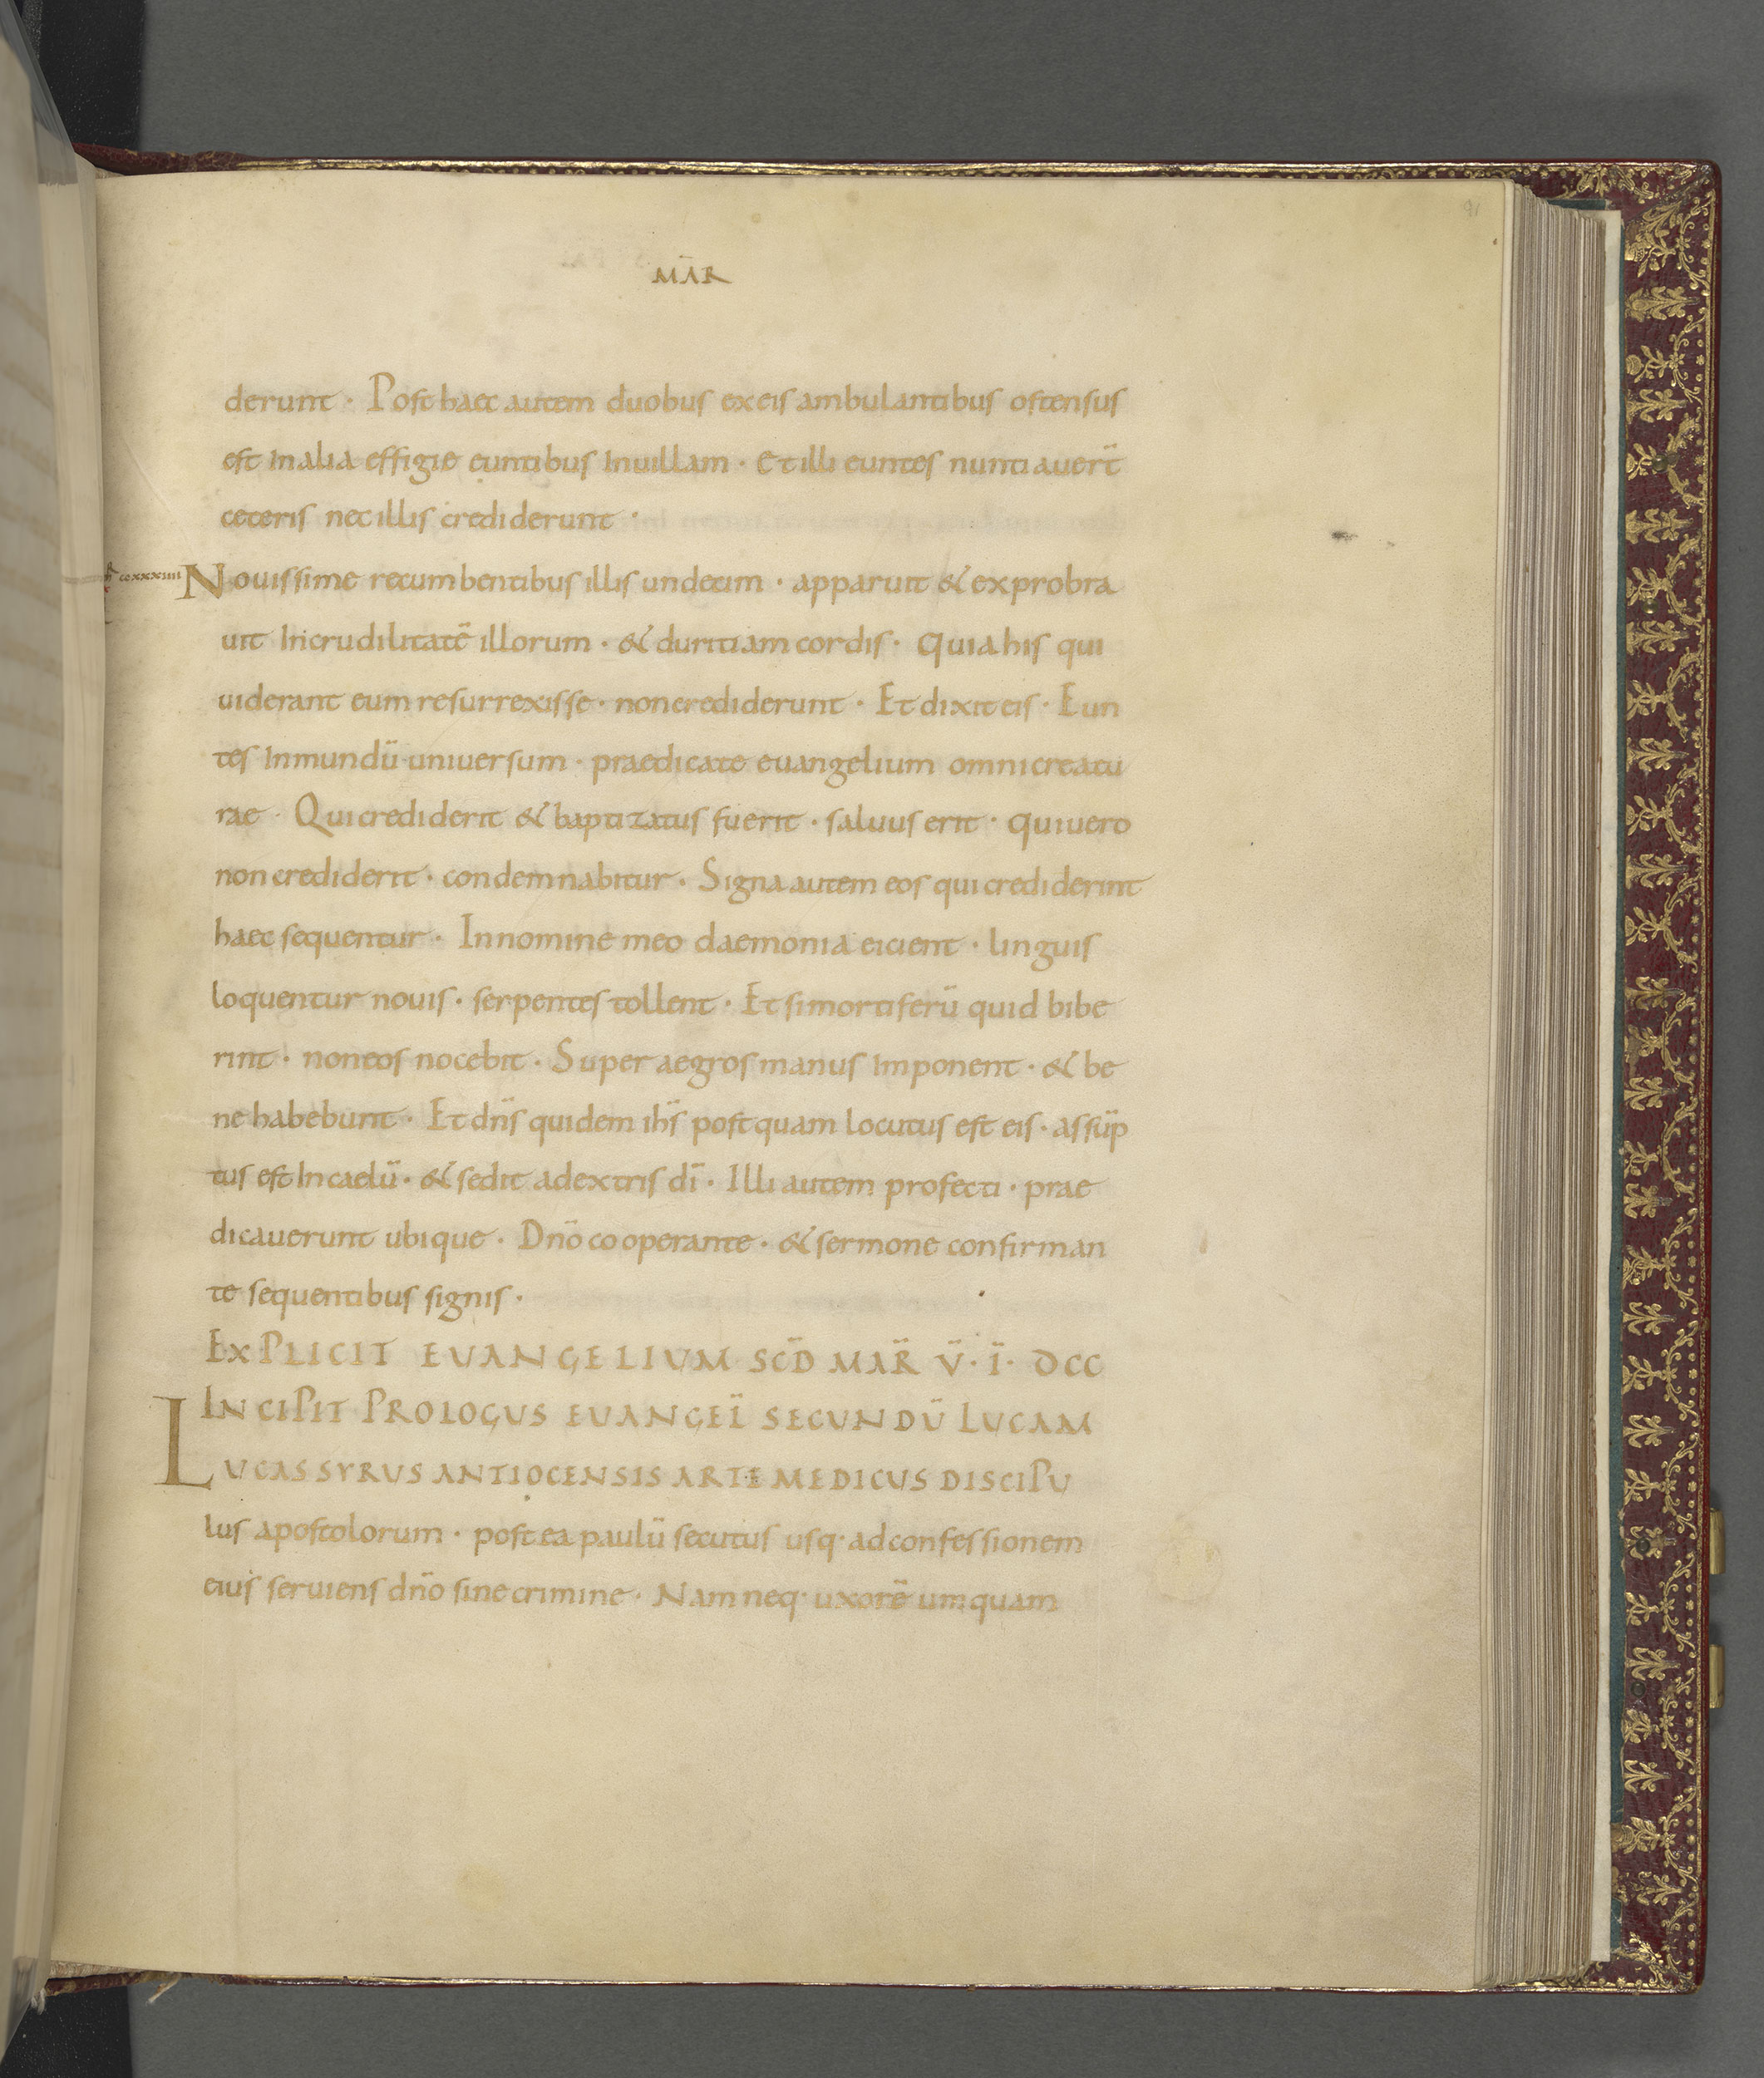 91
MAR̄
derunt · Post haec autem duobus ex eis ambulantibus ostensus
est In alia effigie euntibus In uillam · Et illi euntes nuntiauer̄t
ceteris nec illis crediderunt ·
ccxxxiiii Nouissime recumbentibus illis undecim · apparuit & exprobra
uit Incrudilitatē illorum · & duritiam cordis · Quia his qui
uiderant eum resurrexisse · non crediderunt · Et dixit eis · Eun
tes In mundū uniuersum · praedicate euangelium omni creatu
rae · Qui crediderit & baptizatus fuerit · saluus erit · Qui uero
non crediderit · condemnabitur · Signa autem eos qui crediderint
haec sequentur · In nomine meo daemonia eicient · linguis
loquentur nouis · serpentes tollent · Et si mortiferū quid bibe
rint · non eos nocebit · Super aegros manus Imponent · & be
ne habebunt · Et dn̄s quidem ih̄s postquam locutus est eis · assūp
tus est In caelū · & sedit a dextris dī · Illi autem profecti · prae
dicauerunt ubique · Dn̄o cooperante · & sermone confirman
te sequentibus signis ·
EXPLICIT EUANGELIUM SCD̄ MAR̄ Ū · Ī · DCC
INCIPIT PROLOGUS EUANGEL̄ SECUNDŪ LUCAM
LUCAS SYRUS ANTIOCENSIS ARTE MEDICUS DISCIPU
lus apostolorum · postea paulū secutus usq· ad confessionem
eius seruiens dn̄o sine crimine · Nam neq· uxorē umquam